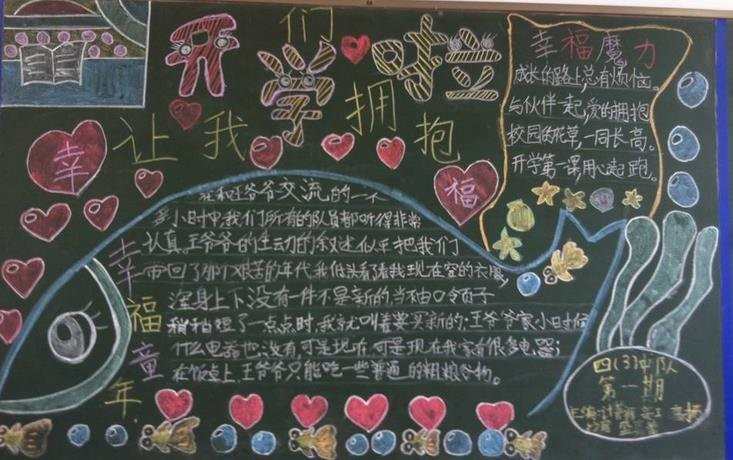 开学啦
让我们拥抱
幸福
幸福童年
幸福魔力
成长的路上总有烦恼。
与伙伴一起,爱的拥抱
校园的花草,一同长高。
开学第一课用心起跑。
在和王爷爷交流的一个
多小时中,我们所有的队员都听得非常
认真。王爷爷的生动的叙述似乎把我们
带回了那个艰苦的年代我低头看了看我现在穿的衣服
浑身上下没有一件不是新的,当袖口领子
稍稍短了一点点时,我就叫着要买新的;王爷爷家小时候
什么电器也没有,可是现在可是现在我家有很多电器;
在饭桌上,王爷爷只能吃一些普通的粗粮谷物。
四(3)中队
第一期